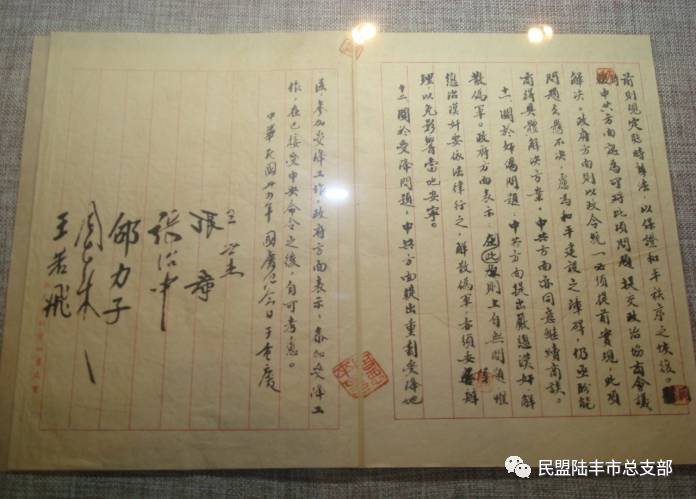 前則規定臨時辦法，以保證和平秩序之恢復。
中共方面認為可將此項問題提交政治協商會議
解決。政府方面則以政令統一必須提前實現，此項
問題久懸不決，慮為和平建設之障礙，仍亟盼能
商得具體解決方案。中共方面亦同意繼續商談。
十一、關於奸偽問題，中共方面提出嚴懲漢奸，解
散偽軍。政府方面表示：此在原則上自無問題，惟
懲治漢奸要依法律行之，解散偽軍，亦須妥慎辦
理，以免影響當地安寧。
十二、關於受降問題，中共方面提出重劃受降地
區，參加受降工作。政府方面表示，參加受降工
作，在已接受中央命令之後，自可考慮。
中華民國卅四年國慶紀念日于重慶
王世杰
張羣
張治中
邵力子
周恩來
王若飛
民盟陆丰市总支部